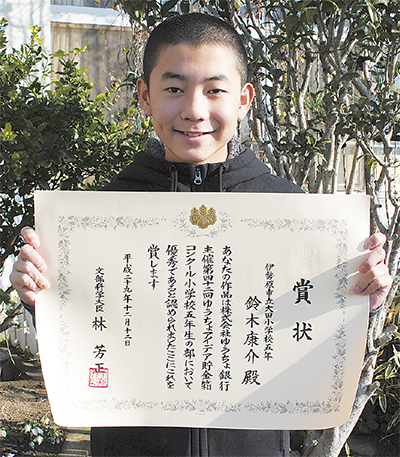 賞状
伊勢原市立大田小学校五年
鈴木康介殿
あなたの作品は株式会社ゆうちょ銀行
主催第四十二回ゆうちょアイデア貯金箱
コンクール小学校五年生の部において
優秀であると認められましたここにこれを
賞します
平成二十九年十二月十二日
文部科学大臣 林芳正